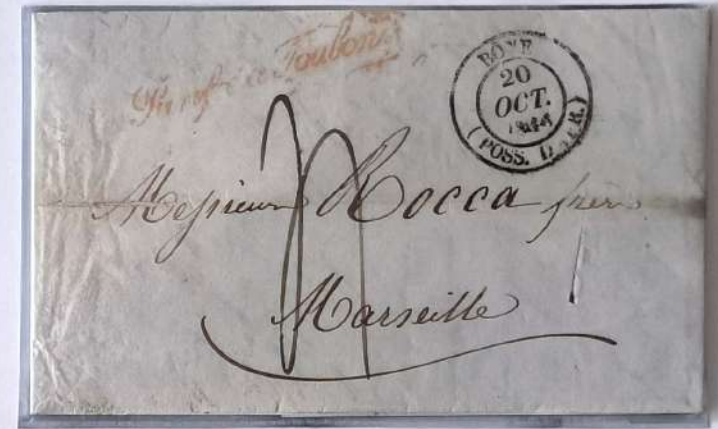 Purifié à Toulon
BONE
20
OCT.
(POSS. D'AFR.)
Messieurs Rocca frères
Marseille